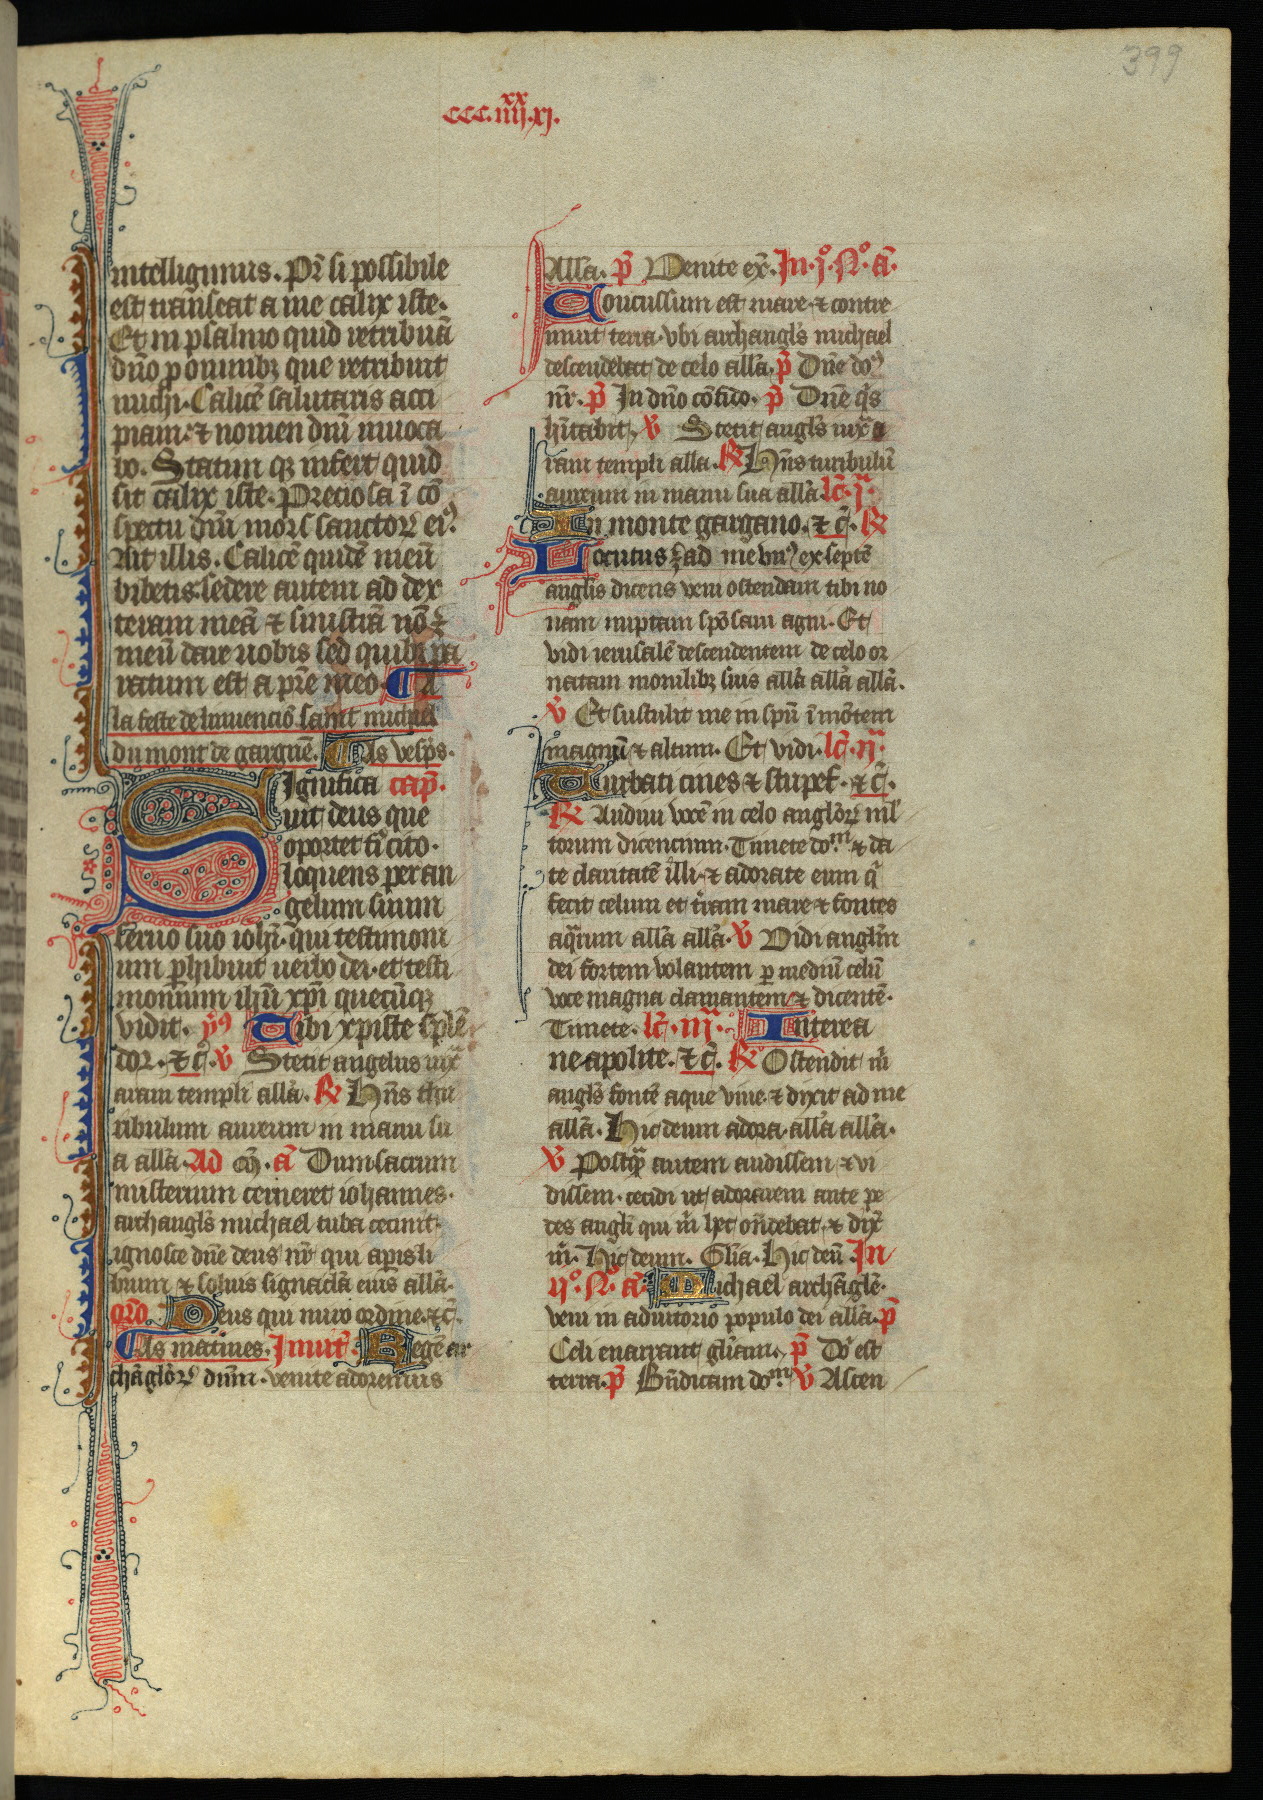 399
ccc.iiij^xx.xj.
intelligimus. Pr̄ si possibile
est transeat a me calix iste.
Et in psalmo quid retribuā
dn̄o p omnibꝫ que retribuit
michi. Calicē salutaris acci
piam. ⁊ nomen dn̄i inuoca
bo. Statim qꝫ infert quid
sit calix iste. Preciosa ī cō
spectu dn̄i mors sanctoꝝ eiꝰ.
Ait illis. Calicē quidē meū
bibetis. sedere autem ad dex
teram meā ⁊ sinistrā nō ē
meū dare uobis sed quibꝫ pa
ratum est a pr̄e meo. A
la feste de linuencio᷒ saint michiel
du mont de gargue᷒. As vesp̄s.
Significa cap̄.
uit deus que
oportet fi̓ cito.
loquens per an
gelum suum
seruo suo ioh̄i. qui testimoni
um p̄hibuit uerbo dei. et testi
monium ih̄u xp̄i quecūqꝫ
vidit. yꝰ Tibi xpiste splē
dor. ⁊ c̄. ꝟ Stetit angelus iux̄
aram templi allā. ℟ Hn̄s thu
ribulum aureum in manu su
a allā. Ad m̄. a᷒ Dum sacrum
misterium cerneret iohannes.
archangl̄s michael tuba cecinit.
ignosce dn̄e deus nr̄ qui apis li
brum ⁊ soluis signacl̄a eius allā.
orō. Deus qui miro ordine. ⁊ c̄.
As matines. Inuit̄. Regē ar
chāgl̄oꝝ dn̄m. venite adoremus
Allā. p̄ Venite ex̄. In. j°. N°. a᷒.
Concussum est mare ⁊ contre
muit terra. vbi archangl̄s michael
descendebat de celo allā. p̄ Dn̄e doꝰ
nr̄. p̄ In dn̄o cōfido. p̄ Dn̄e q̄s
hītabit. ꝟ Stetit angl̄s iux̄ a
ram templi alla. ℟ Hn̄s turibulū
aureum in manu sua allā. lc̄. j᷒.
In monte gargano. ⁊ c̄. ℟
Locutus ē ad me vnꝰ ex septē
angl̄is dicens veni ostendam tibi no
uam nuptam spōsam agni. Et
vidi ierusalē descendentem de celo or
natam monilibꝫ suis allā allā allā.
ꝟ Et sustulit me in spū ī mōtem
magnū ⁊ altum. Et vidi. lc̄. ij᷒.
Turbati ciues ⁊ stupef̄. ⁊ c̄.
℟ Audiui vocē in celo angl̄oꝝ ml̄
torum dicencium. Timete doᵐ. ⁊ da
te claritatē illi. ⁊ adorate eum q̄
fecit celum et tr̄am mare ⁊ fontes
aq̄rum allā allā. ꝟ Vidi angl̄m
dei fortem volantem p mediū celū
voce magna clamantem ⁊ dicentē.
Timete. lc̄. iij᷒. Interea
neapolite. ⁊ c̄. ℟ Ostendit m̄
angl̄s fontē aque viue. ⁊ dixit ad me
allā. Hic deum adora. allā allā.
ꝟ Postq̄ autem audissem ⁊ vi
dissem. cecidi ut adorarem ante pe
des angl̄i qui m̄ hec on̄debat. ⁊ dix̄
m̄. Hic deum. Gl̄ia. Hic deū. In
ij°. N°. a᷒. Michael archāgl̄e.
veni in adiutorio populo dei allā. p̄
Celi enarrant gl̄iam. p̄ Dn̄i est
terra. p̄ Bn̄dicam doᵐ. ꝟ Ascen